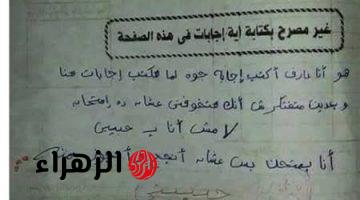 غير مصرح بكتابة أية إجابات فى هذه الصفحة
هو أنا عارف أكتب إجابة جوه لما هكتب إجابات هنا
وبعدين متفتكرش أنك هتخوفنى عشان ده امتحان
لا مش أنا يا حبيبى
أنا بمتحن بس عشان أنجح
الزهراء